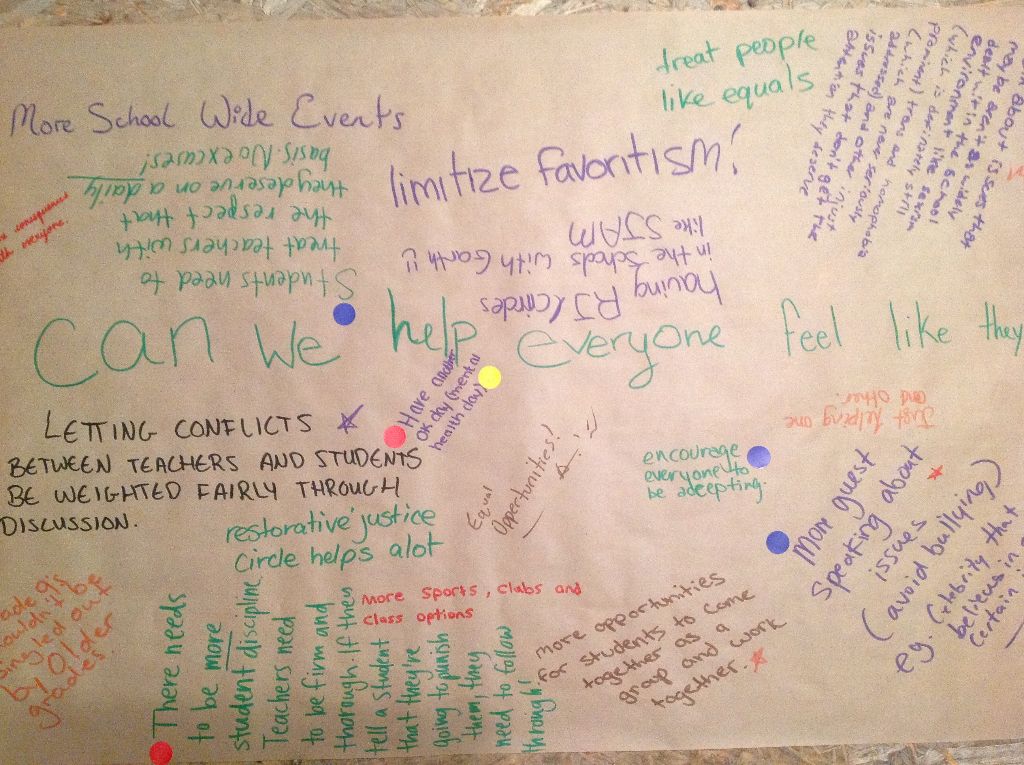 More School Wide Events
treat people
like equals
limitize favoritism!
may be overt or likely
dealt with in the school
environment like sexism
(which is definitely still
prominent) trans and homophobia
(which are never seriously
addressed) and other
issues that don't get the
attention they deserve
Students need to
treat teachers with
the respect that
they deserve on a daily
basis. No excuses!
consequences
with everyone.
having RJ/circles
in the Schools with Garth
like SJAM
Can We help everyone feel like they
Have another
OK day (mental
health day)
Just helping one
and other.
LETTING CONFLICTS
BETWEEN TEACHERS AND STUDENTS
BE WEIGHTED FAIRLY THROUGH
DISCUSSION.
Equal
Opportunities!
encourage
everyone to
be adcepting.
More guest
Speaking about
issues
(avoid bullying)
eg. Celebrity that
believes in
certain
restorative justice
Circle helps alot
More Sports, clubs and
class options
ade 9's
ouldn't be
singled out
by older
grades.
There needs
to be more
student discipline.
Teachers need
to be firm and
thorough. If they
tell a student
that they're
going to punish
them, they
need to follow
through!
more opportunities
for students to come
together as a
group and work
together.